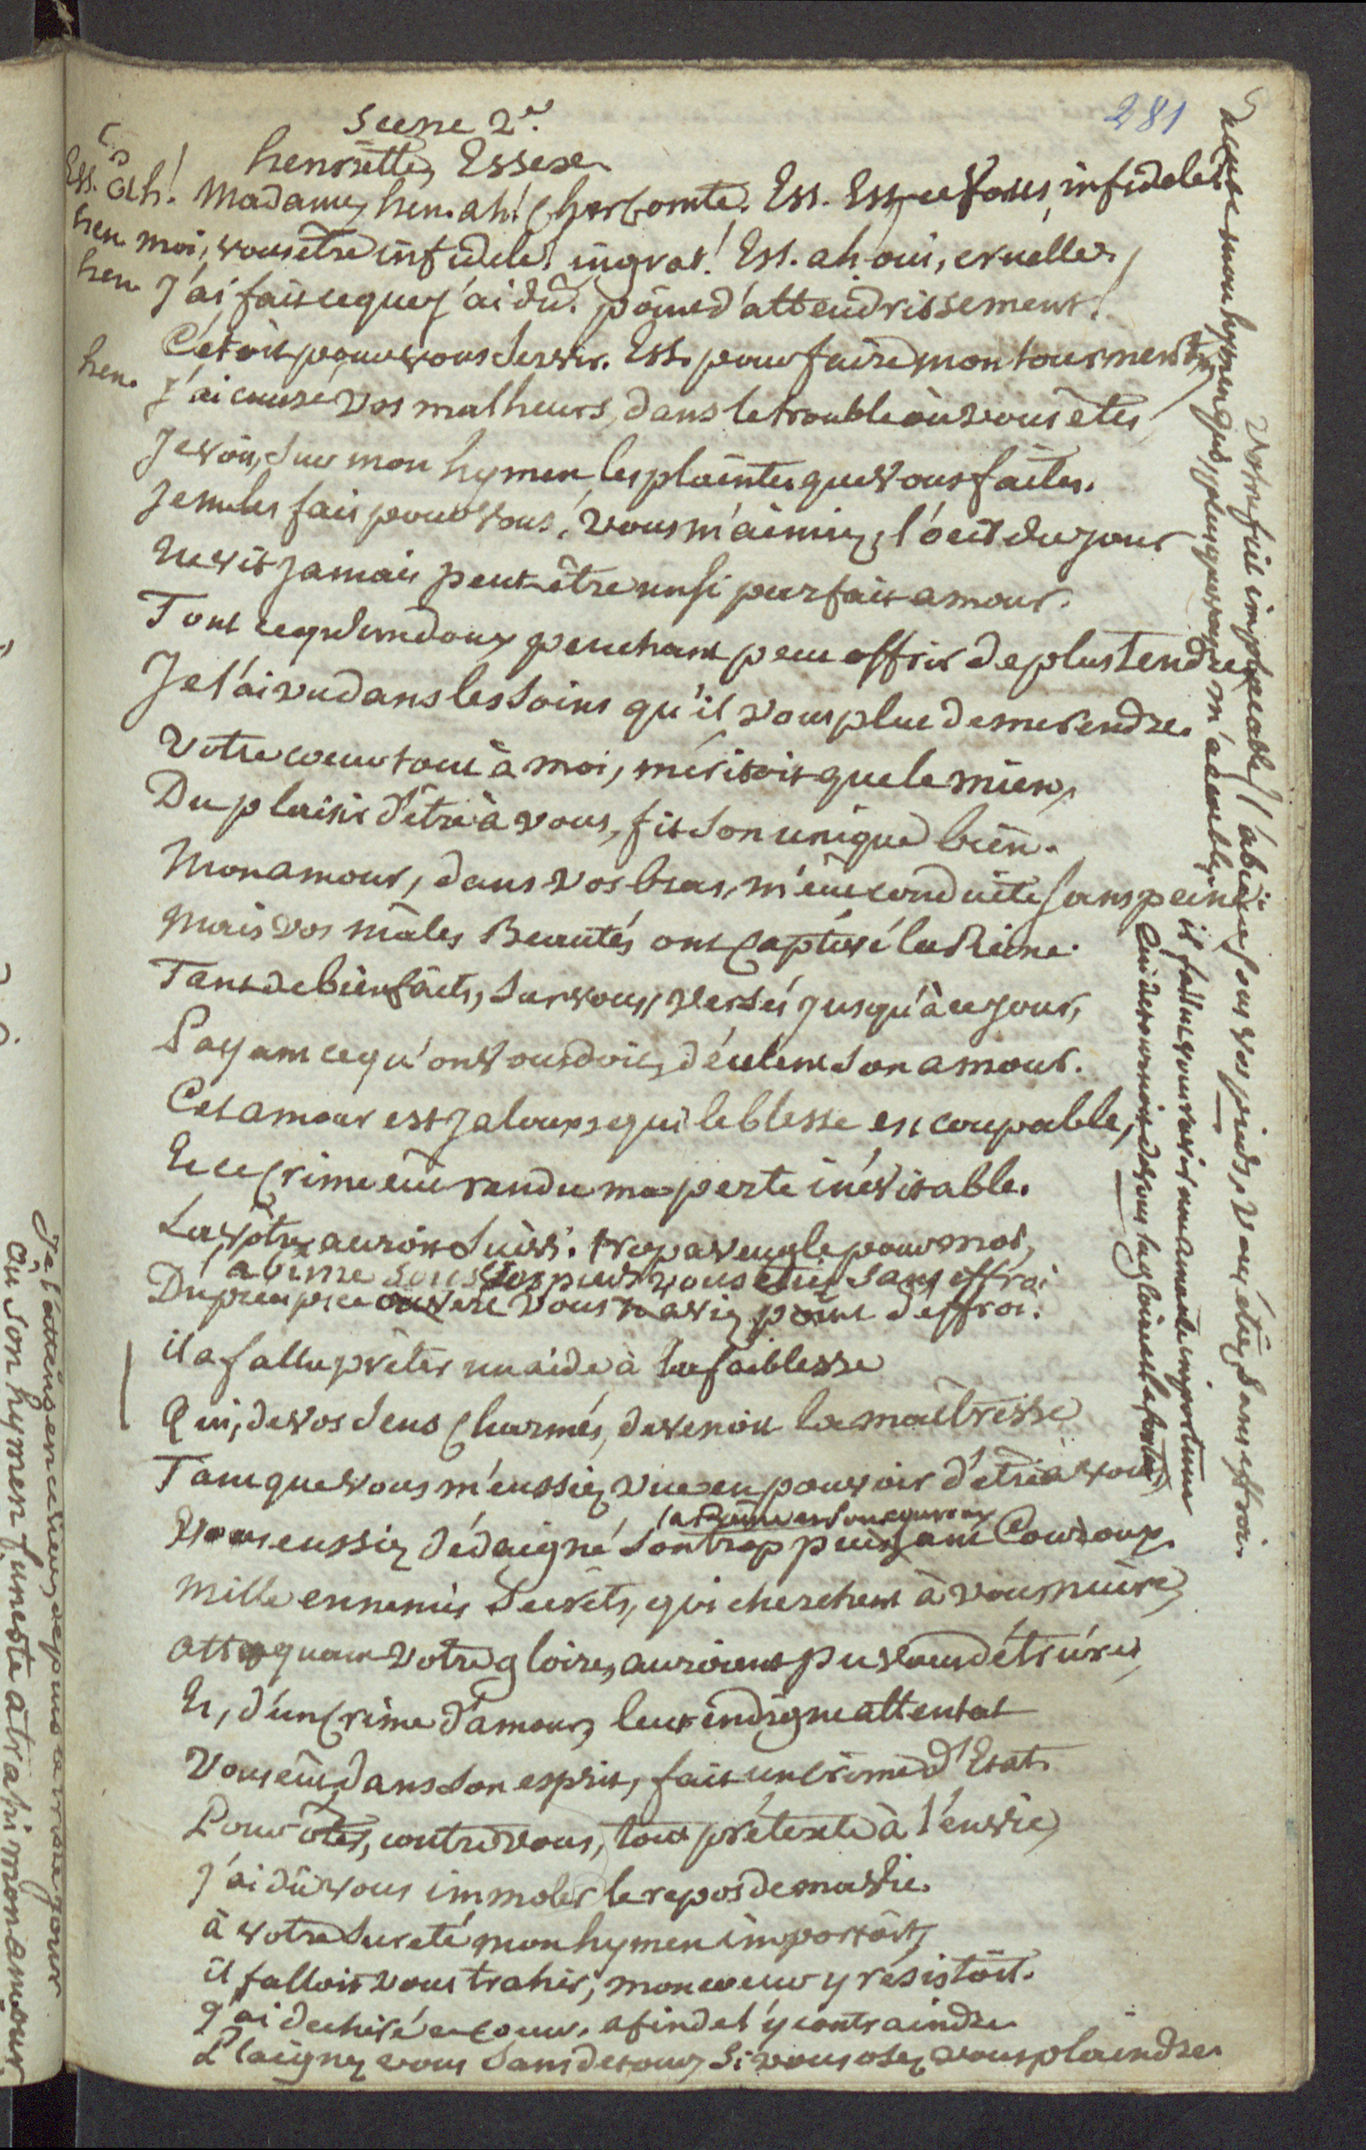 281
Scene 2e.
henriette, Essex
Ess. Ah! Madame, hen. ah! Cher Comte. Ess. Est-ce Vous, infidele?
hen. moi, vous être infidele! ingrat! Ess. ah oui, cruelle,
hen. J'ai fait ce que j'ai dû. point d'attendrissement!
C'étoit pour vous servir. Ess. pour faire mon tourment.
hen. J'ai causé vos malheurs, dans le trouble où vous êtes
Je vois, sur mon hymen, les plaintes que vous faites.
Je me les fais pour vous, vous m'aimiez, l'oeil du jour
Ne vit jamais peut-être un si parfait amour.
Tout ce qu'un doux penchant peut offrir de plus tendre
Je l'ai vu dans les soins qu'il vous plut de me rendre.
Votre coeur tout à moi, méritoit que le mien,
Du plaisir d'être à vous, fit son unique bien.
Mon amour, dans vos bras, m'eût conduite sans peine
Mais vos mâles Beautés ont Captivé la Reine.
Tant de bienfaits, sur vous, versés jusqu'à ce jour,
Payant ce qu'on vous doit, décelent son amour.
Cet amour est jaloux, qui le blesse est coupable,
Et ce Crime eût rendu ma perte inévitable.
La vôtre auroit suivi. trop aveugle pour moi,
abime sous vos pieds vous étiez sans effroi
Du précipice ouvert vous n'aviez point d'effroi.
il a fallu prêter un aide à la faiblesse
Qui, de vos sens Charmés, devenoit la maîtresse
Tant que vous m'eussiez vue en pouvoir d'être à vous,
la Reine et son courroux
Vous eussiez dédaigné son trop puissant Courroux.
Mille ennemis secrets, qui cherchent à vous nuire,
Attaquant votre gloire, auroient pu vous détruire,
Et, d'un Crime d'amour, leur indigne attentat
Vous eût, dans son esprit, fait un crime d'Etat.
Pour ôter, contre vous, tout prétexte à l'envie,
J'ai dû vous immoler le repos de ma vie.
à votre sureté mon hymen importoit,
il falloit vous trahir; mon coeur y résistoit.
J'ai déchiré ce coeur, afin de l'y contraindre
Plaignez vous sans détour, si vous osez vous plaindre.
mon hymen qui, plus que vous, m'accable,
Votre fuite implacable
L'abime sous vos pieds, vous étiez sans effroi.
il fallut vous ravir une amante importune
Qui détournoit de vous la gloire et la fortune
Je l'atteins en ces lieux, depuis
où son hymen funeste a trahi mon amour.